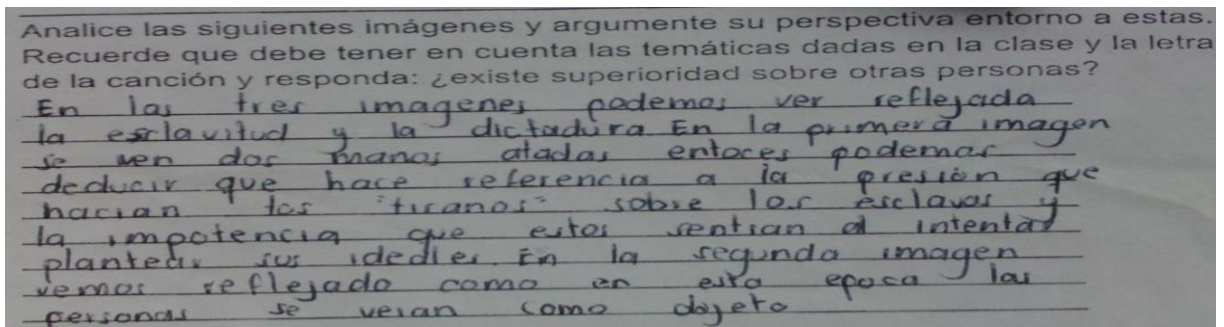 Analice las siguientes imágenes y argumente su perspectiva entorno a estas.
Recuerde que debe tener en cuenta las temáticas dadas en la clase y la letra
de la canción y responda: ¿existe superioridad sobre otras personas?
En las tres imagenes podemos ver reflejada
la esclavitud y la dictadura En la primera imagen
se ven dos manos atadas entoces podemos
deducir que hace referencia a la presión que
hacian los "tiranos" sobre los esclavos y
la impotencia que estos sentian al intentar
plantear sus ideales. En la segunda imagen
vemos reflejado como en esta epoca las
personas se veian como objeto